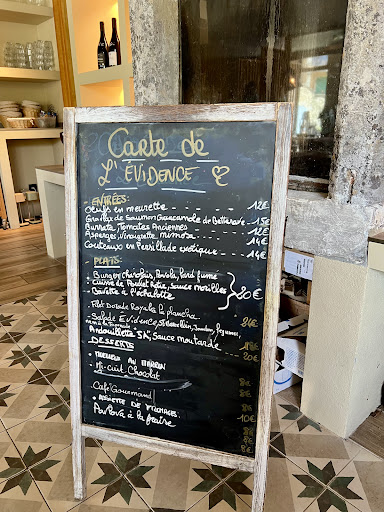 Carte de
L'ÉVIDENCE
ENTRÉES
Oeufs en meurette 12€
Gravlax de Saumon Guacamole de Betterave 15€
Burrata, Tomates Anciennes 12€
Asperges, Vinaigrette, mimosa 14€
Couteaux en Persillade exotique 14€
PLATS
Burger Charolais, lard fumé
Cuisse de Poulet Rôtie, Sauce morilles
Bavette à l'échalotte 20€
Filet Dorade Royale la plancha
Salade Evidence, 24€
Andouillette 5A, Sauce moutarde 18€
DESSERTS 20€
Mi-cuit Chocolat
Café Gourmand 8€
ASSIETTE DE FROMAGES 8€
Pavlova à la fraise 10€
8€
8€